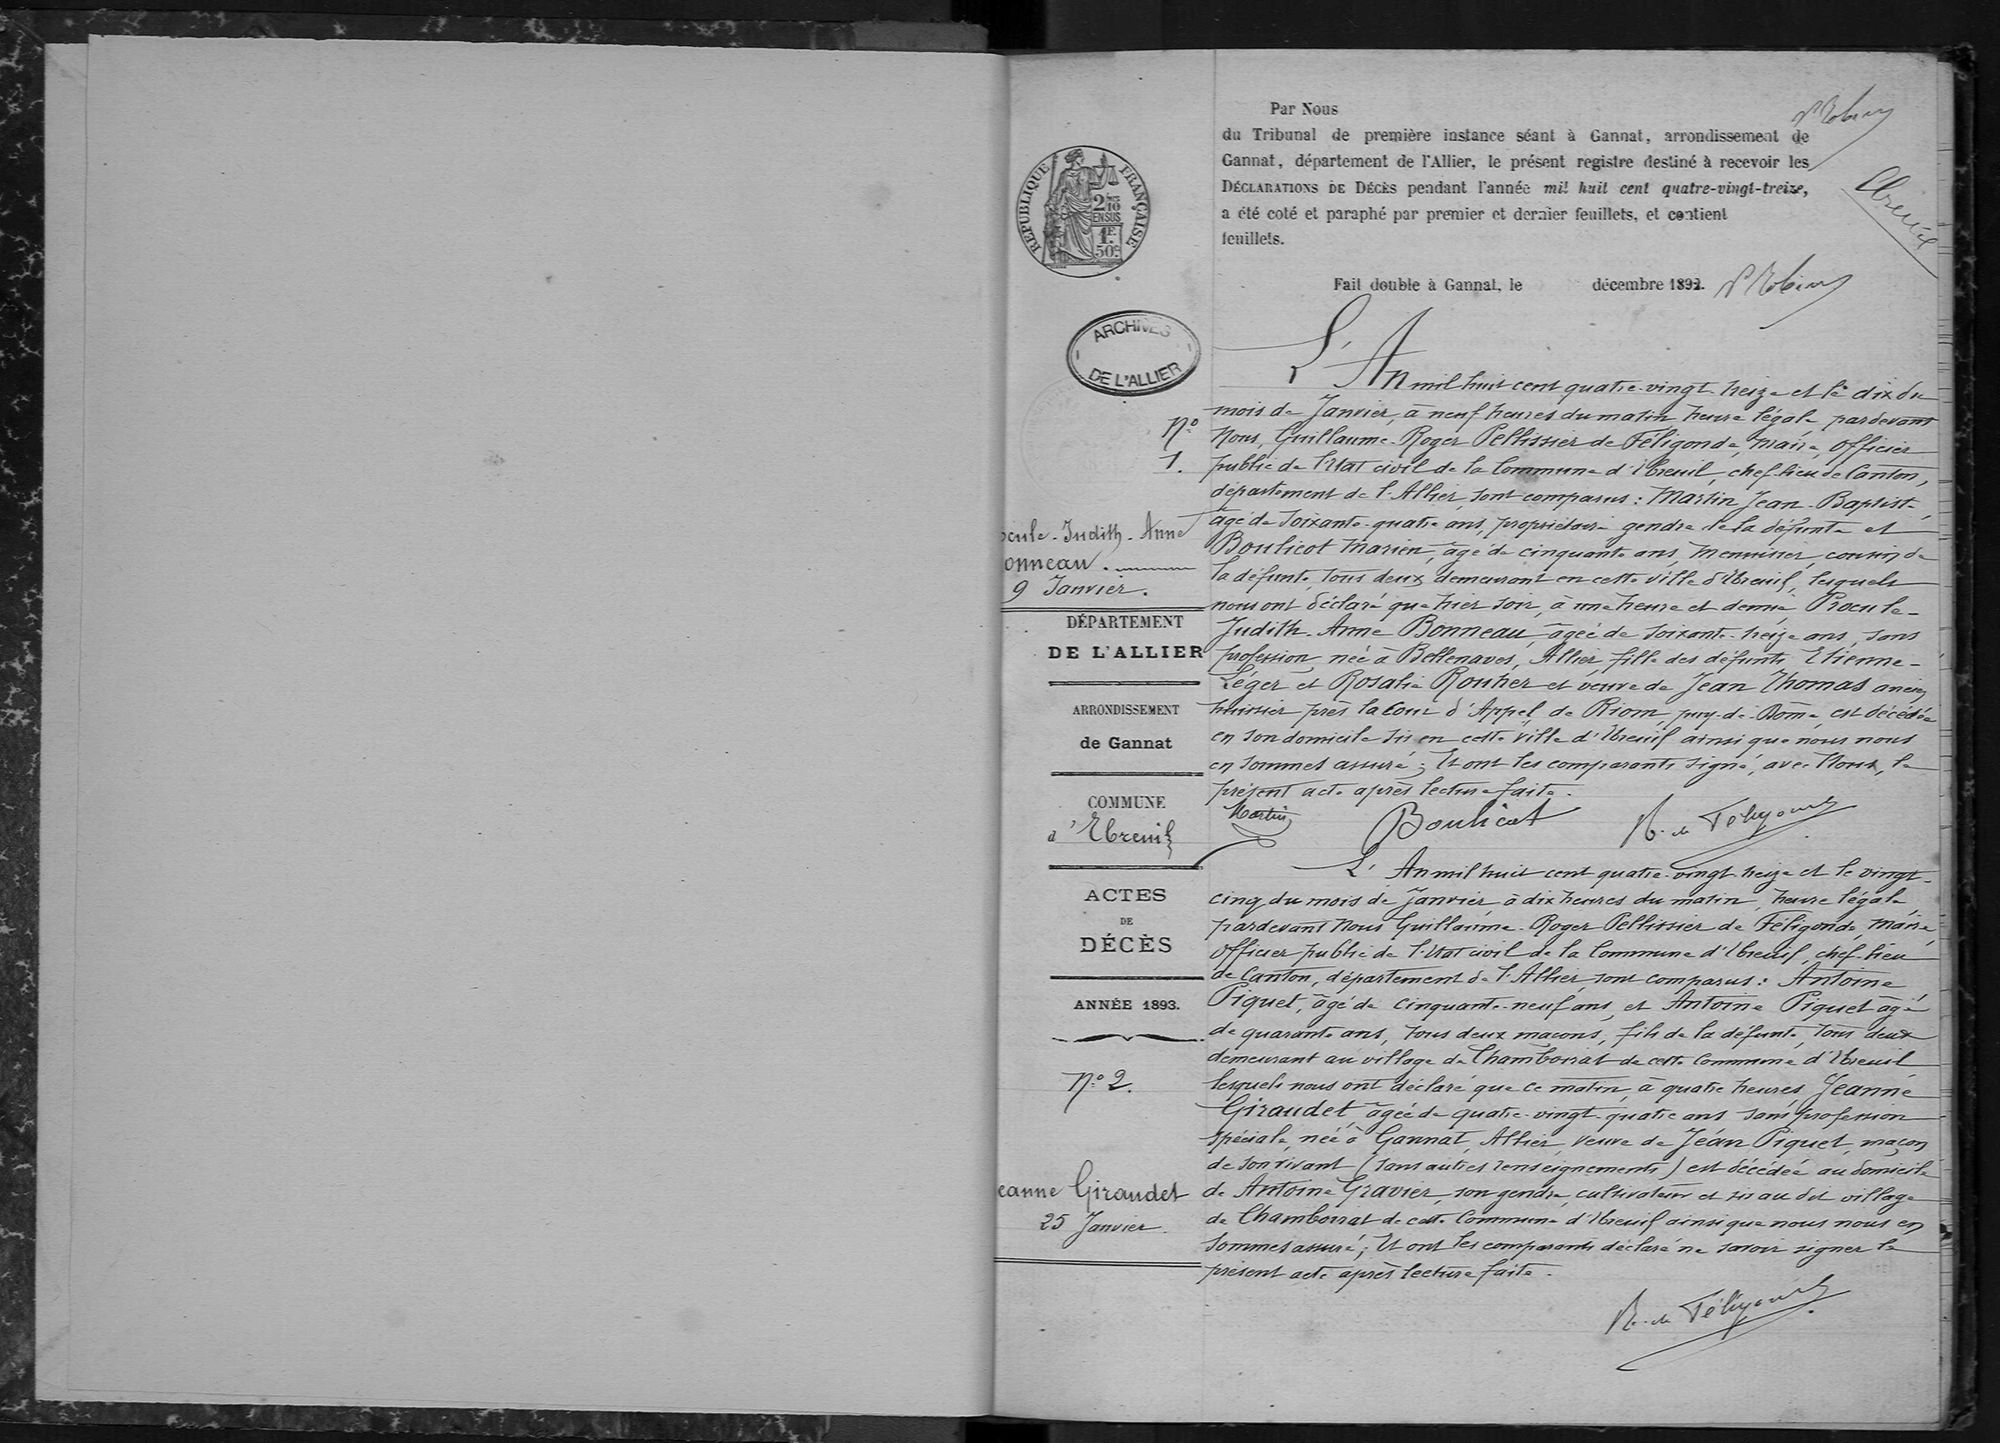 Par Nous
du Tribunal de première instance séant à Gannat, arrondissement de
Gannat, département de l'Allier, le présent registre destiné à recevoir les
DÉCLARATIONS DE DÉCÈS pendant l'année mil huit cent quatre-vingt-treize,
a été coté et paraphé par premier et dernier feuillets, et contient
feuillets.
Ebreuil
Fait double à Gannat, le décembre 1892.
RÉPUBLIQUE FRANÇAISE
2/10
EN SUS
1F
50c
ARCHIVES
DE L'ALLIER
N°
1.
ocule-Judith-Anne
onneau.
9 Janvier.
DÉPARTEMENT
DE L'ALLIER
ARRONDISSEMENT
de Gannat
COMMUNE
d'Ebreuil
ACTES
DE
DÉCÈS
ANNÉE 1893.
N° 2.
eanne Giraudet
25 Janvier.
L'An mil huit cent quatre-vingt treize et le dix du
mois de Janvier, à neuf heures du matin heure légale pardevant
Nous, Guillaume-Roger Pellissier de Féligonde, Maire, Officier
public de l'Etat civil de la Commune d'Ebreuil, chef-lieu de Canton,
département de l'Allier, sont comparus : Martin Jean-Baptiste,
âgé de soixante-quatre ans, propriétaire gendre de la défunte et
Boulicot Marien, âgé de cinquante ans, Menuisier, cousin de
la défunte, tous deux demeurant en cette ville d'Ebreuil, lesquels
nous ont déclaré que hier soir, à une heure et demie Procule-
Judith-Anne Bonneau âgée de soixante-treize ans, sans
profession, née à Bellenaves, Allier, fille des défunts Etienne-
Léger et Rosalie Rouher et veuve de Jean Thomas ancien
huissier près la Cour d'Appel de Riom, puy-de-Dôme, est décédée
en son domicile sis en cette ville d'Ebreuil ainsi que nous nous
en sommes assuré ; Et ont les comparants signé, avec Nous, le
présent acte après lecture faite.
Martin Boulicot R. de Féligonde
L'An mil huit cent quatre-vingt treize et le vingt-
cinq du mois de Janvier à dix heures du matin, heure légale
pardevant Nous Guillaume-Roger Pellissier de Féligonde, Maire,
Officier public de l'Etat civil de la Commune d'Ebreuil, chef-lieu
de Canton, département de l'Allier, sont comparus : Antoine
Piquet, âgé de cinquante-neuf ans, et Antoine Piquet âgé
de quarante ans, tous deux maçons, fils de la défunte, tous deux
demeurant au village de Chamborat de cette Commune d'Ebreuil
lesquels nous ont déclaré que ce matin, à quatre heures, Jeanne
Giraudet, âgée de quatre-vingt-quatre ans sans profession
spéciale, née à Gannat, Allier, veuve de Jean Piquet, maçon
de son vivant (sans autres renseignements) est décédée au domicile
de Antoine Gravier, son gendre, cultivateur et sis au dit village
de Chamborat de cette Commune d'Ebreuil ainsi que nous nous en
sommes assuré ; Et ont les comparants déclaré ne savoir signer le
présent acte après lecture faite.
R. de Féligonde